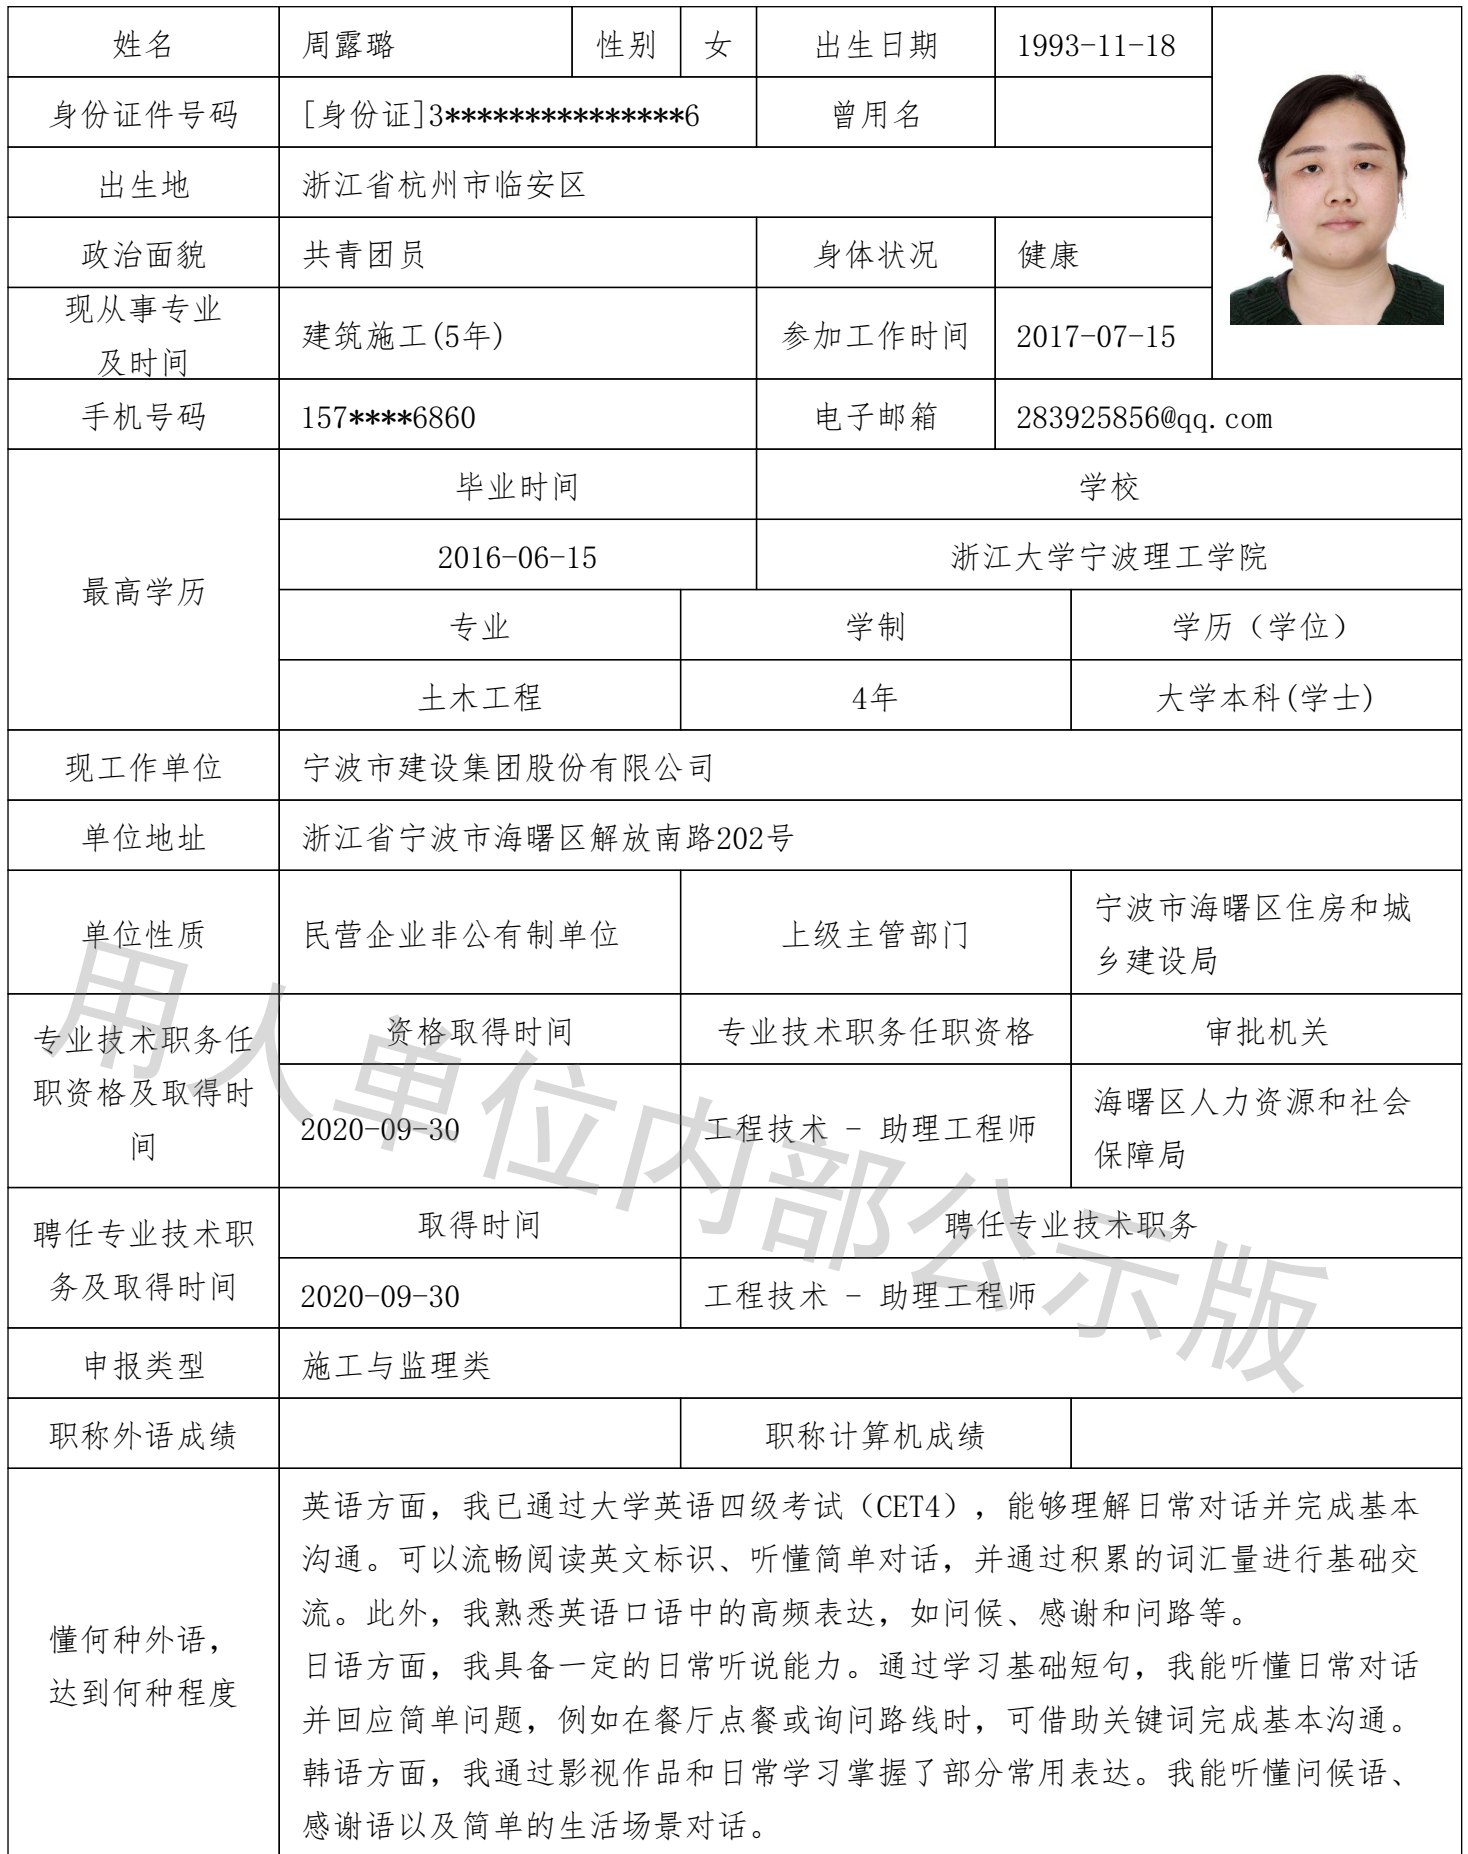 姓名 周露璐 性别 女 出生日期 1993-11-18
身份证件号码 [身份证]3***************6 曾用名
出生地 浙江省杭州市临安区
政治面貌 共青团员 身体状况 健康
现从事专业
及时间
建筑施工(5年) 参加工作时间 2017-07-15
手机号码 157****6860 电子邮箱 283925856@qq.com
最高学历
毕业时间 学校
2016-06-15 浙江大学宁波理工学院
专业 学制 学历（学位）
土木工程 4年 大学本科(学士)
现工作单位 宁波市建设集团股份有限公司
单位地址 浙江省宁波市海曙区解放南路202号
单位性质 民营企业非公有制单位 上级主管部门
宁波市海曙区住房和城
乡建设局
专业技术职务任
职资格及取得时
间
资格取得时间 专业技术职务任职资格 审批机关
2020-09-30 工程技术 - 助理工程师
海曙区人力资源和社会
保障局
聘任专业技术职
务及取得时间
取得时间 聘任专业技术职务
2020-09-30 工程技术 - 助理工程师
申报类型 施工与监理类
职称外语成绩 职称计算机成绩
懂何种外语，
达到何种程度
英语方面，我已通过大学英语四级考试（CET4），能够理解日常对话并完成基本
沟通。可以流畅阅读英文标识、听懂简单对话，并通过积累的词汇量进行基础交
流。此外，我熟悉英语口语中的高频表达，如问候、感谢和问路等。
日语方面，我具备一定的日常听说能力。通过学习基础短句，我能听懂日常对话
并回应简单问题，例如在餐厅点餐或询问路线时，可借助关键词完成基本沟通。
韩语方面，我通过影视作品和日常学习掌握了部分常用表达。我能听懂问候语、
感谢语以及简单的生活场景对话。
用人单位内部公示版